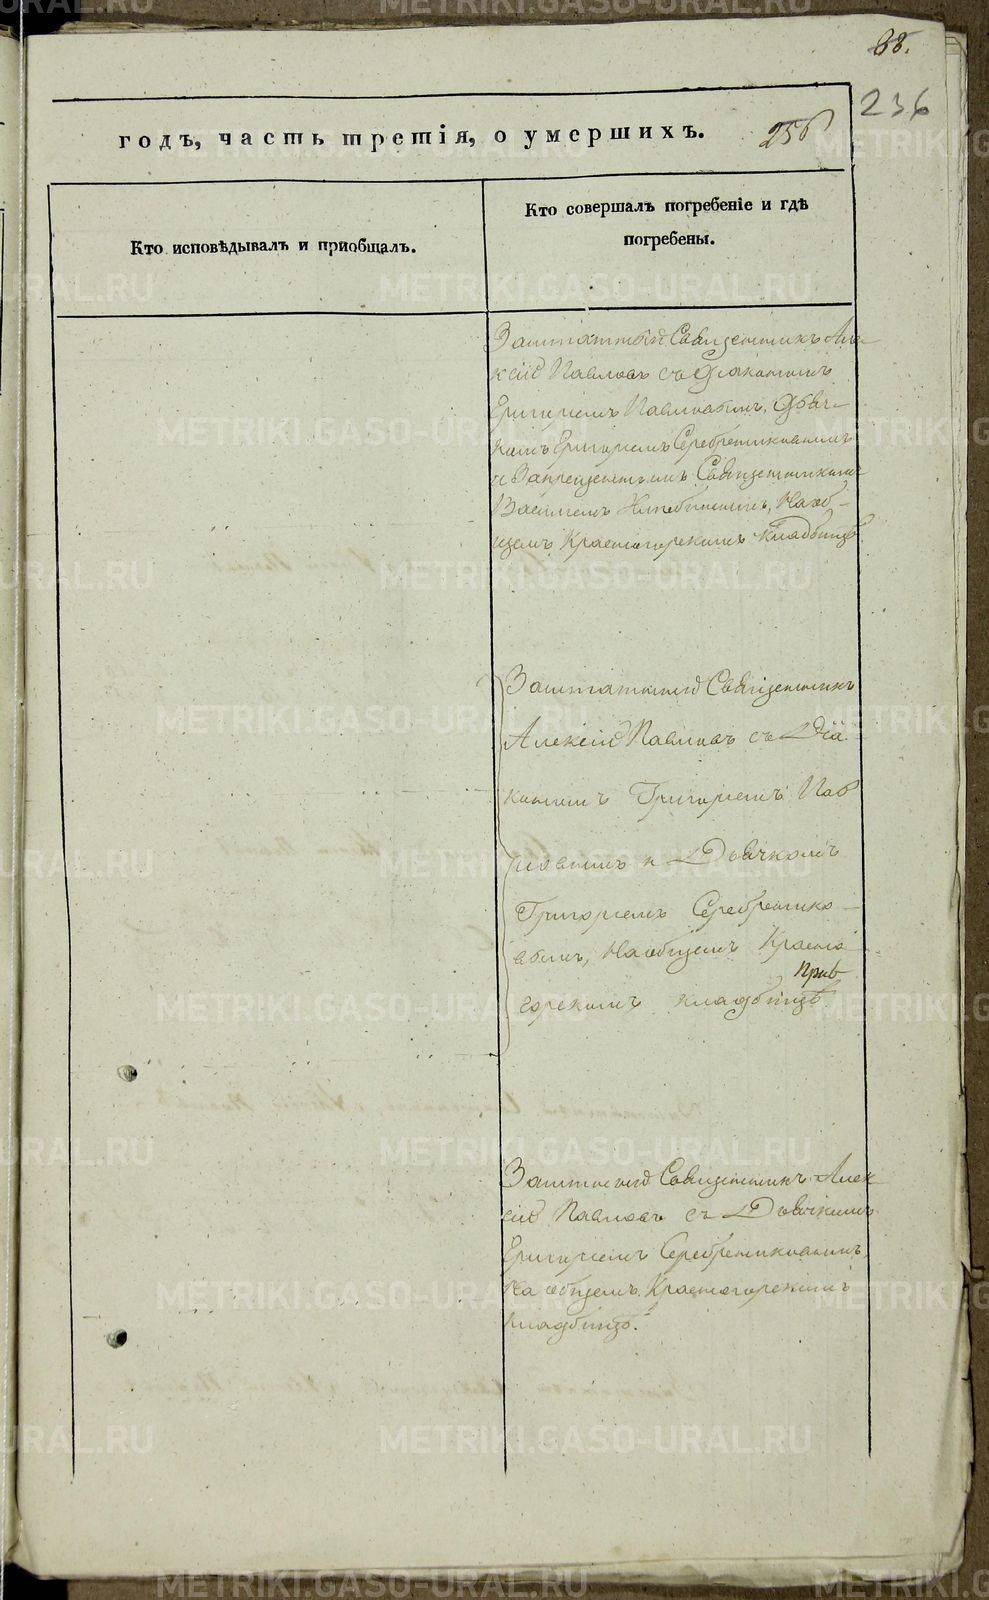 88.
236
годъ, часть третія, о умершихъ.
256
Кто исповѣдывалъ и пріобщалъ.
Кто совершалъ погребеніе и гдѣ
погребены.
Заштатный Священникъ Але-
ксій Павловъ съ Діакономъ
Григоріемъ Павловымъ, Дьяч-
комъ Григоріемъ Серебренниковымъ
и Запрещеннымъ Священникомъ
Василіемъ На об-
щемъ Красногорскомъ кладбищѣ
Заштатный Священникъ
Алексій Павловъ съ Діа-
кономъ Григоріемъ Пав
ловымъ и Дьячкомъ
Григоріемъ Серебреннико-
вымъ, На общемъ Красно
горскомъ кладбищѣ.
Заштатный Священникъ Алек
сій Павловъ съ Дьячкомъ
Григоріемъ Серебренниковымъ,
На общемъ Красногорскомъ
кладбищѣ.
METRIKI.GASO-URAL.RU